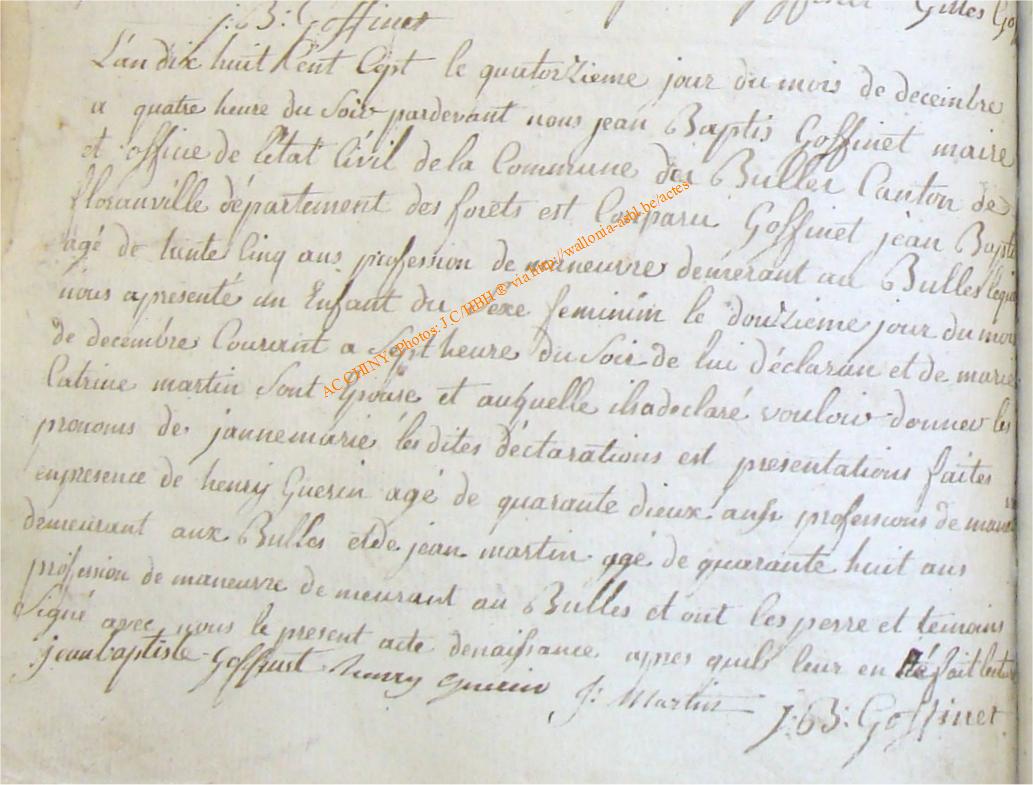 Gilles Gof
J: B: Goffinet
L'an dix huit Cent Cept le quatorzieme jour du mois de decembre
a quatre heure du Soir pardevant nous jean Baptis Goffinet maire
et officie de l'Etat Civil de la Commune des Bulles Canton de
florauville département des forets est Comparu Goffinet jean Baptis
agé de trente Cinq ans profession de maneuvre demerant au Bulles lequel
nous apresenté un Enfant du Sexe feminin le douzieme jour du mois
de decembre Courant a Sept heure du Soir de lui déclaran et de marie
Catrine martin Sont Epouse et auquelle il a declaré vouloir donner les
pronoms de jannemarie les dites déctarations est presentations faites
enpresence de henry Guerin agé de quarante dieux ans professions de
demeurant aux Bulles et de jean martin agé de quarante huit ans
proffession de maneuvre demeurant au Bulles et ont les perre et temoins
Signé avec nous le present acte denaissance apres quils leur en été fait lecture
jeanbaptiste Goffinet henry Guerin J: Martin
J: B: Goffinet
AC CHINY - Photos: J.C/HBH ® via http//wallonia-asbl.be/actes